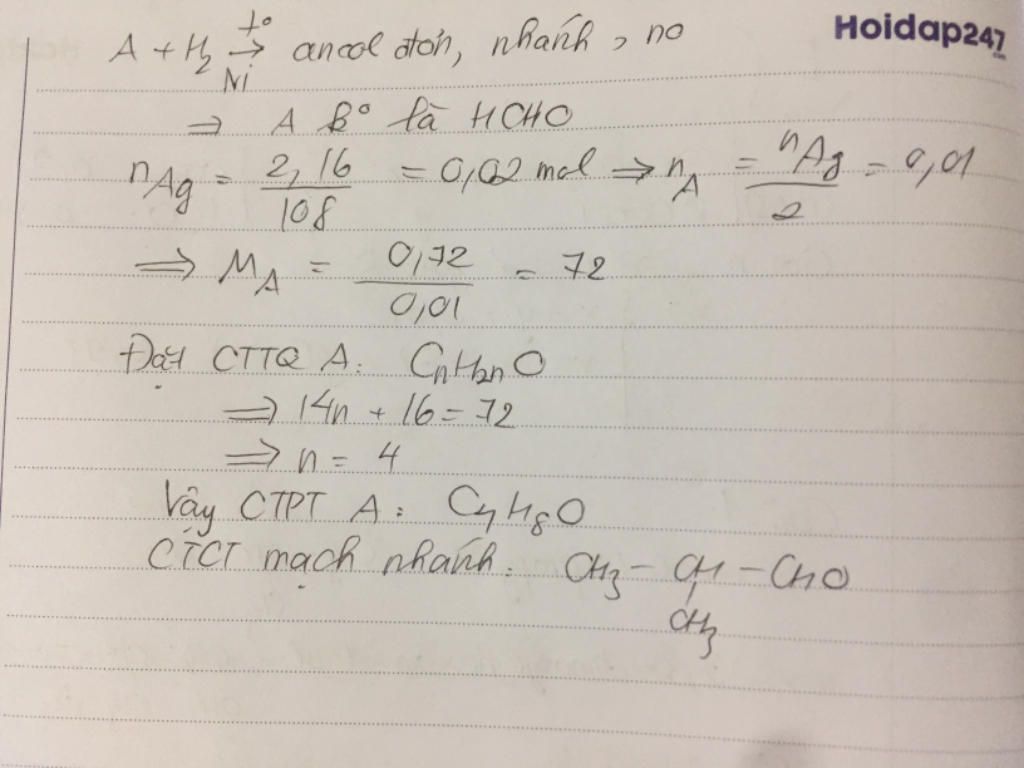 Hoidap247
.com
A + H₂ →(t°, Ni) ancol đơn, nhánh, no
⇒ A B° là HCHO
nAg = 2,16/108 = 0,02 mol ⇒ nA = nAg/2 = 0,01
⇒ MA = 0,72/0,01 = 72
Đặt CTTQ A: CnH2nO
⇒ 14n + 16 = 72
⇒ n = 4
Vậy CTPT A: C₄H₈O
CTCT mạch nhánh: CH₃ – CH – CHO
CH₃